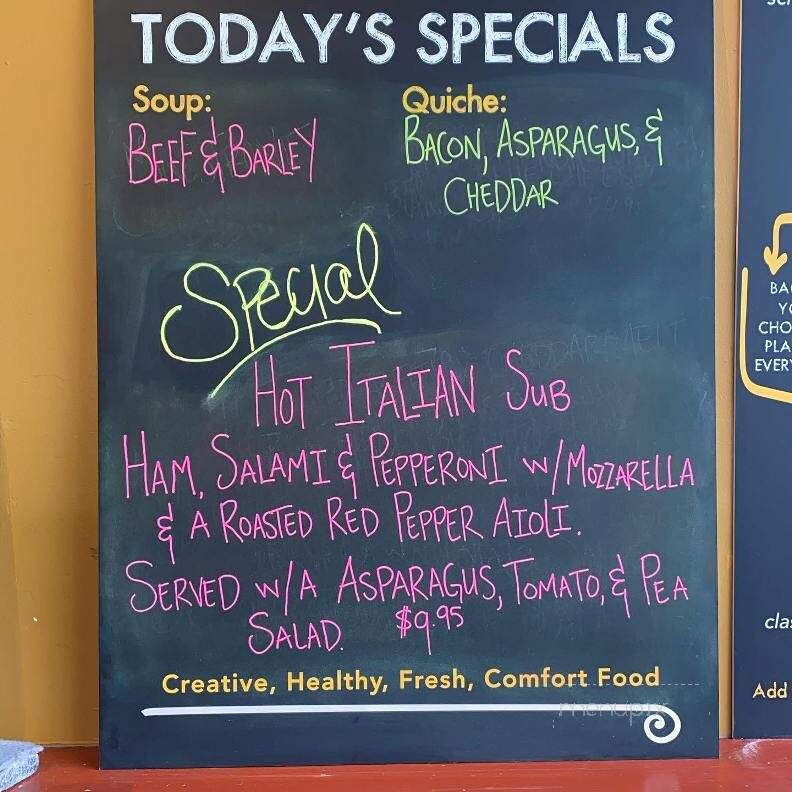 TODAY'S SPECIALS
Soup:
BEEF & BARLEY
Quiche:
BACON, ASPARAGUS, &
CHEDDAR
SPECIAL
HOT ITALIAN SUB
HAM, SALAMI & PEPPERONI W/MOZZARELLA
& A ROASTED RED PEPPER AIOLI.
SERVED W/A ASPARAGUS, TOMATO, & PEA
SALAD. $9.95
Creative, Healthy, Fresh, Comfort Food
CHO
PLA
EVERY
clas
Add